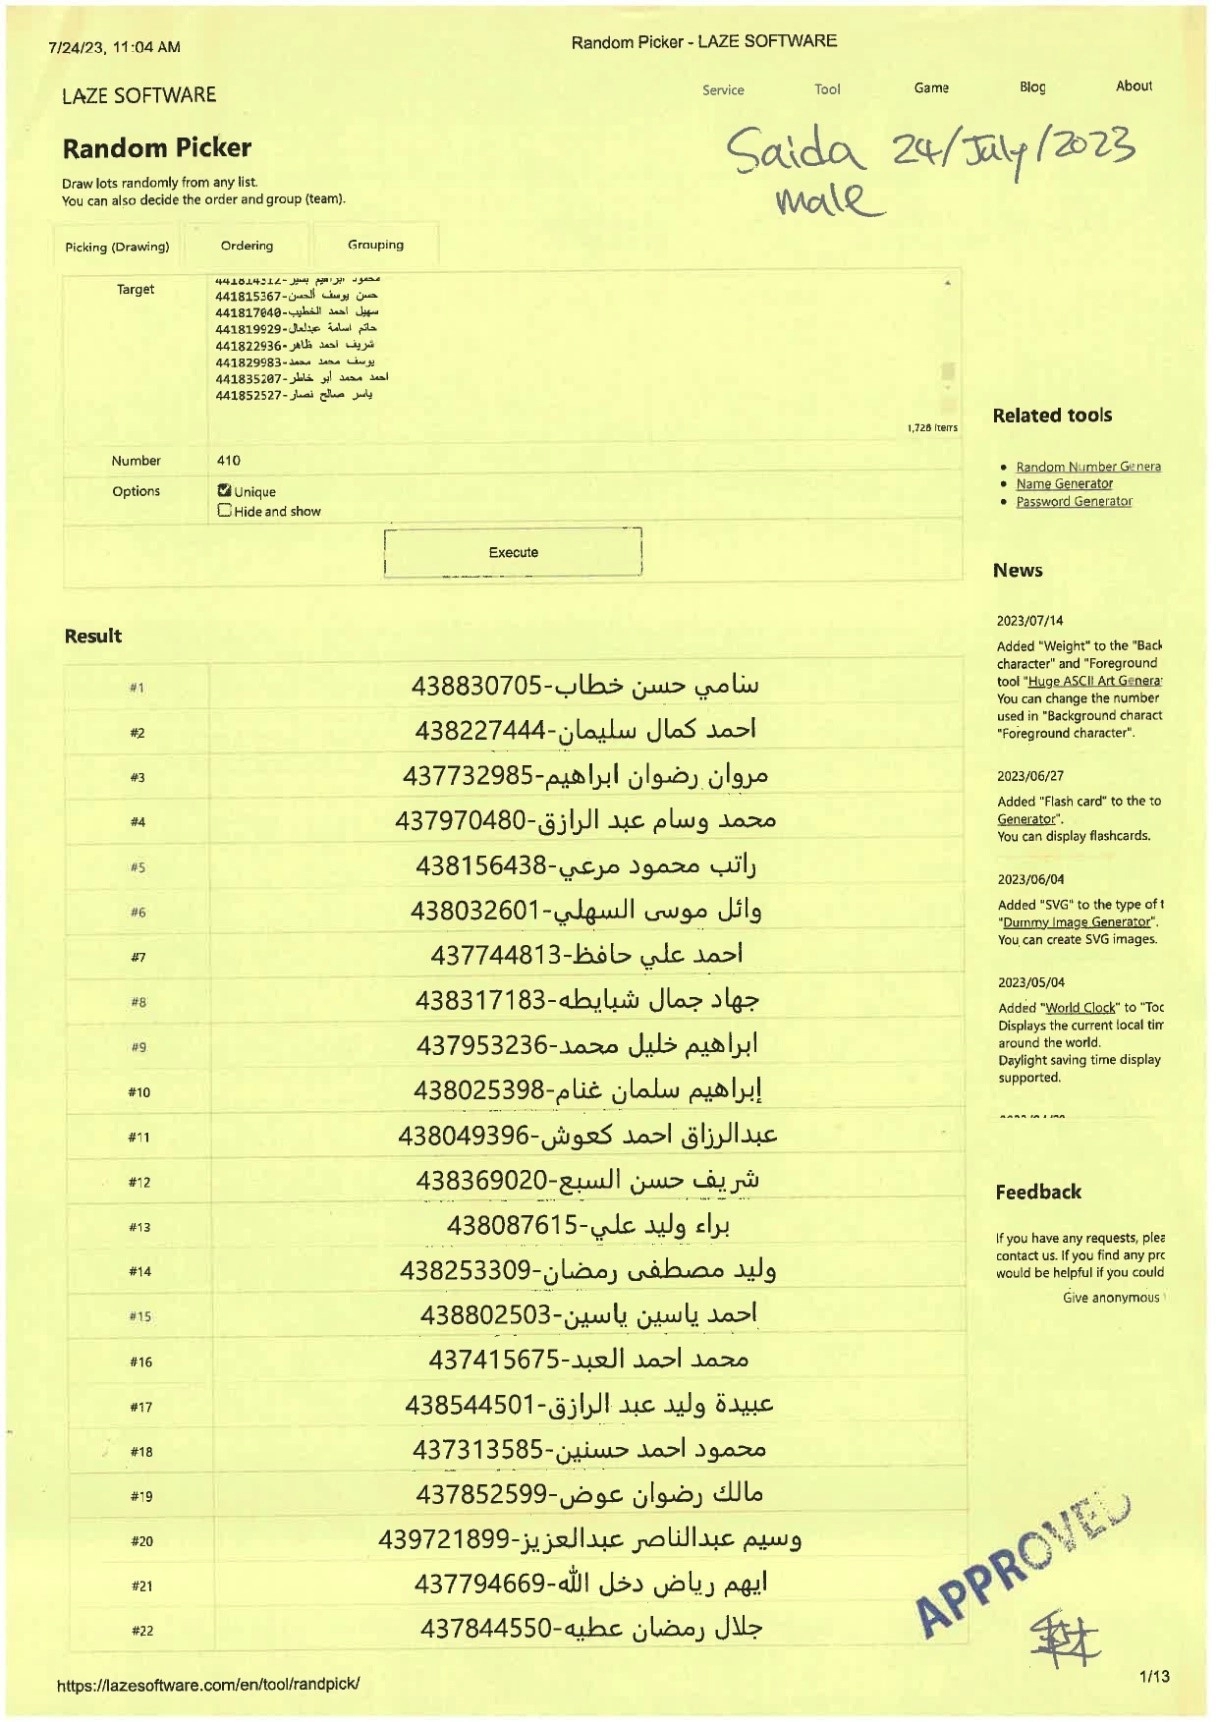 7/24/23, 11:04 AM
Random Picker - LAZE SOFTWARE
LAZE SOFTWARE
Service Tool Game Blog About
Random Picker
Saida 24/July/2023
male
Draw lots randomly from any list.
You can also decide the order and group (team).
Picking (Drawing) Ordering Grouping
Target
محمود ابراهيم بشير-441814312
حسن يوسف ألحسن-441815367
سهيل احمد الخطيب-441817040
حاتم اسامة عبدلعال-441819929
شريف احمد ظاهر-441822936
يوسف محمد محمد-441829983
احمد محمد أبو خاطر-441835207
ياسر صالح نصار-441852527
1,728 items
Number 410
Options
Unique
Hide and show
Execute
Related tools
Random Number Genera
Name Generator
Password Generator
News
2023/07/14
Added "Weight" to the "Back
character" and "Foreground
tool "Huge ASCII Art Genera
You can change the number
used in "Background charact
"Foreground character".
2023/06/27
Added "Flash card" to the to
Generator".
You can display flashcards.
2023/06/04
Added "SVG" to the type of t
"Dummy Image Generator".
You can create SVG images.
2023/05/04
Added "World Clock" to "Toc
Displays the current local tim
around the world.
Daylight saving time display
supported.
Feedback
If you have any requests, plea
contact us. If you find any prc
would be helpful if you could
Give anonymous
Result
#1 سامي حسن خطاب-438830705
#2 احمد كمال سليمان-438227444
#3 مروان رضوان ابراهيم-437732985
#4 محمد وسام عبد الرازق-437970480
#5 راتب محمود مرعي-438156438
#6 وائل موسى السهلي-438032601
#7 احمد علي حافظ-437744813
#8 جهاد جمال شبايطه-438317183
#9 ابراهيم خليل محمد-437953236
#10 إبراهيم سلمان غنام-438025398
#11 عبدالرزاق احمد كعوش-438049396
#12 شريف حسن السبع-438369020
#13 براء وليد علي-438087615
#14 وليد مصطفى رمضان-438253309
#15 احمد ياسين ياسين-438802503
#16 محمد احمد العبد-437415675
#17 عبيدة وليد عبد الرازق-438544501
#18 محمود احمد حسنين-437313585
#19 مالك رضوان عوض-437852599
#20 وسيم عبدالناصر عبدالعزيز-439721899
#21 ايهم رياض دخل الله-437794669
#22 جلال رمضان عطيه-437844550
APPROVED
https://lazesoftware.com/en/tool/randpick/
1/13